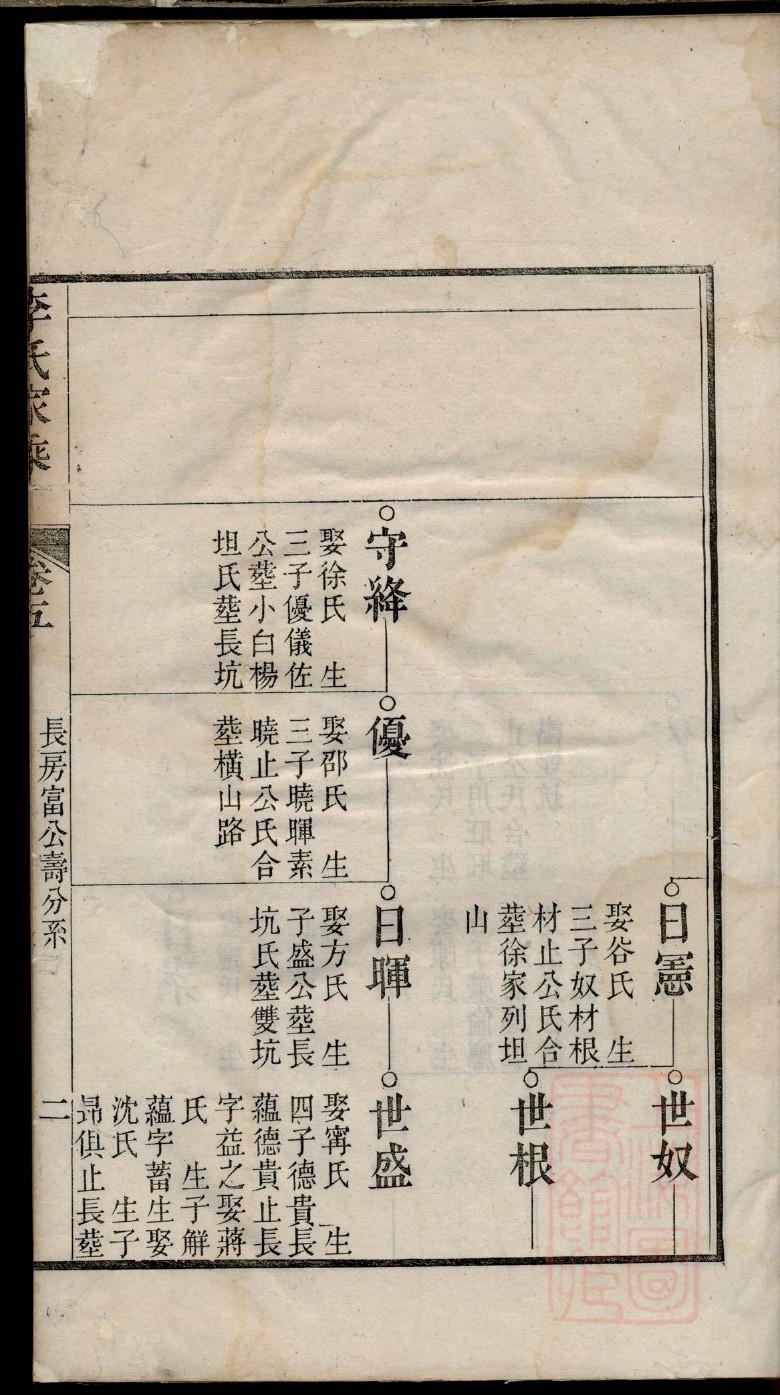 日憲
娶谷氏　生
三子奴材根
材止公氏合
塟徐家列坦
山
世奴
世根
守絳
娶徐氏　生
三子優儀佐
公塟小白楊
坦氏塟長坑
優
娶邵氏　生
三子曉暉素
曉止公氏合
塟橫山路
日暉
娶方氏　生
子盛公塟長
坑氏塟雙坑
世盛
娶甯氏　生
四子德貴長
蘊德貴止長
字益之娶蔣
氏　生子解
蘊字蓄生娶
沈氏　生子
昻俱止長塟
李氏家乘
卷五
長房富公壽分系
二